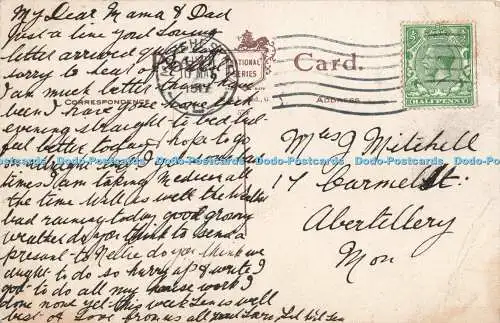 My Dear Mama & Dad
Just a line your Loving
letter arrived
sorry to hear of
I am much better
been I have
evening straight to bed feel
feel better today hope to go
times I am taking Medicen all
the time Will as well the Weather
bad raining today good growing
weather do you think to send a
present to Nellie do you think we
ought to do so hurry up & write I
got to do all my house work I
done none yet this week Len is well
best of Love from us all
Card.
NATIONAL
SERIES
CORRESPONDENCE
ADDRESS
HALFPENNY
Mrs J Mitchell
17 Carmel St.
Abertillery
Mon
Dodo-Postcards Dodo-Postcards Dodo-Postcards Dodo-Postcards Dodo-Postcards